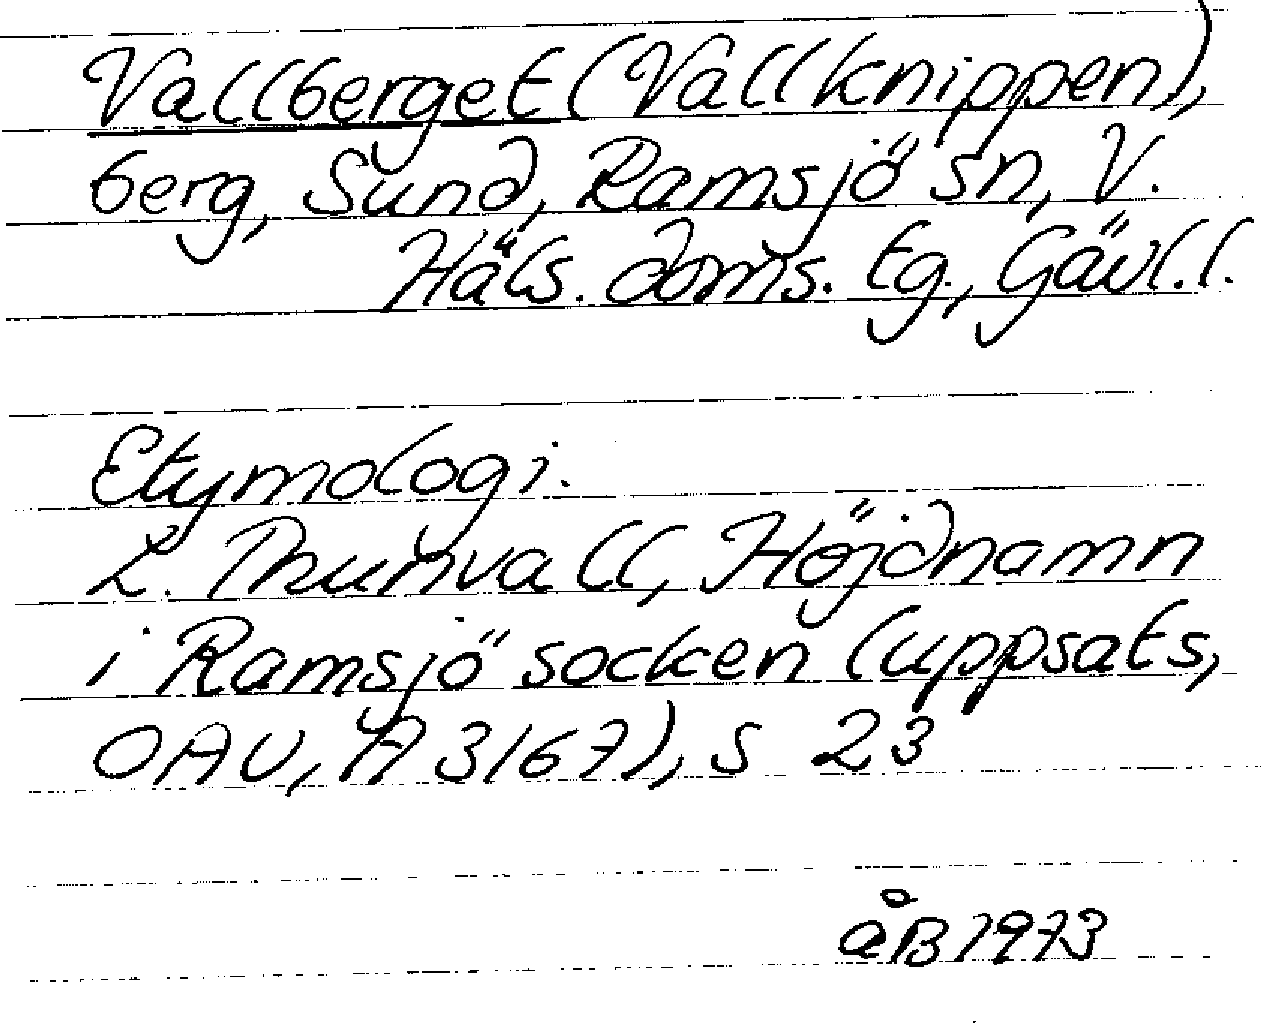 Vallberget (Vallknippen),
berg, Sund, Ramsjö sn, V.
Häls. doms. tg., Gävl.l.
Etymologi.
L. Thunvall, Höjdnamn
i Ramsjö socken (uppsats,
OAU, A 3167), s 23
åB 1973